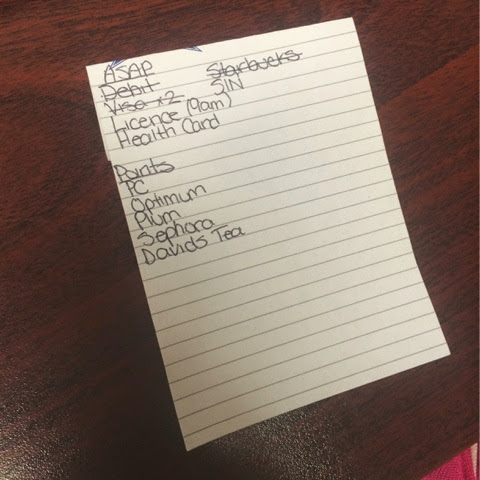 ASAP
Debit Starbucks
Visa x2 SIN
Licence (9am)
Health Card
Points
PC
Optimum
Plum
Sephora
Davids Tea